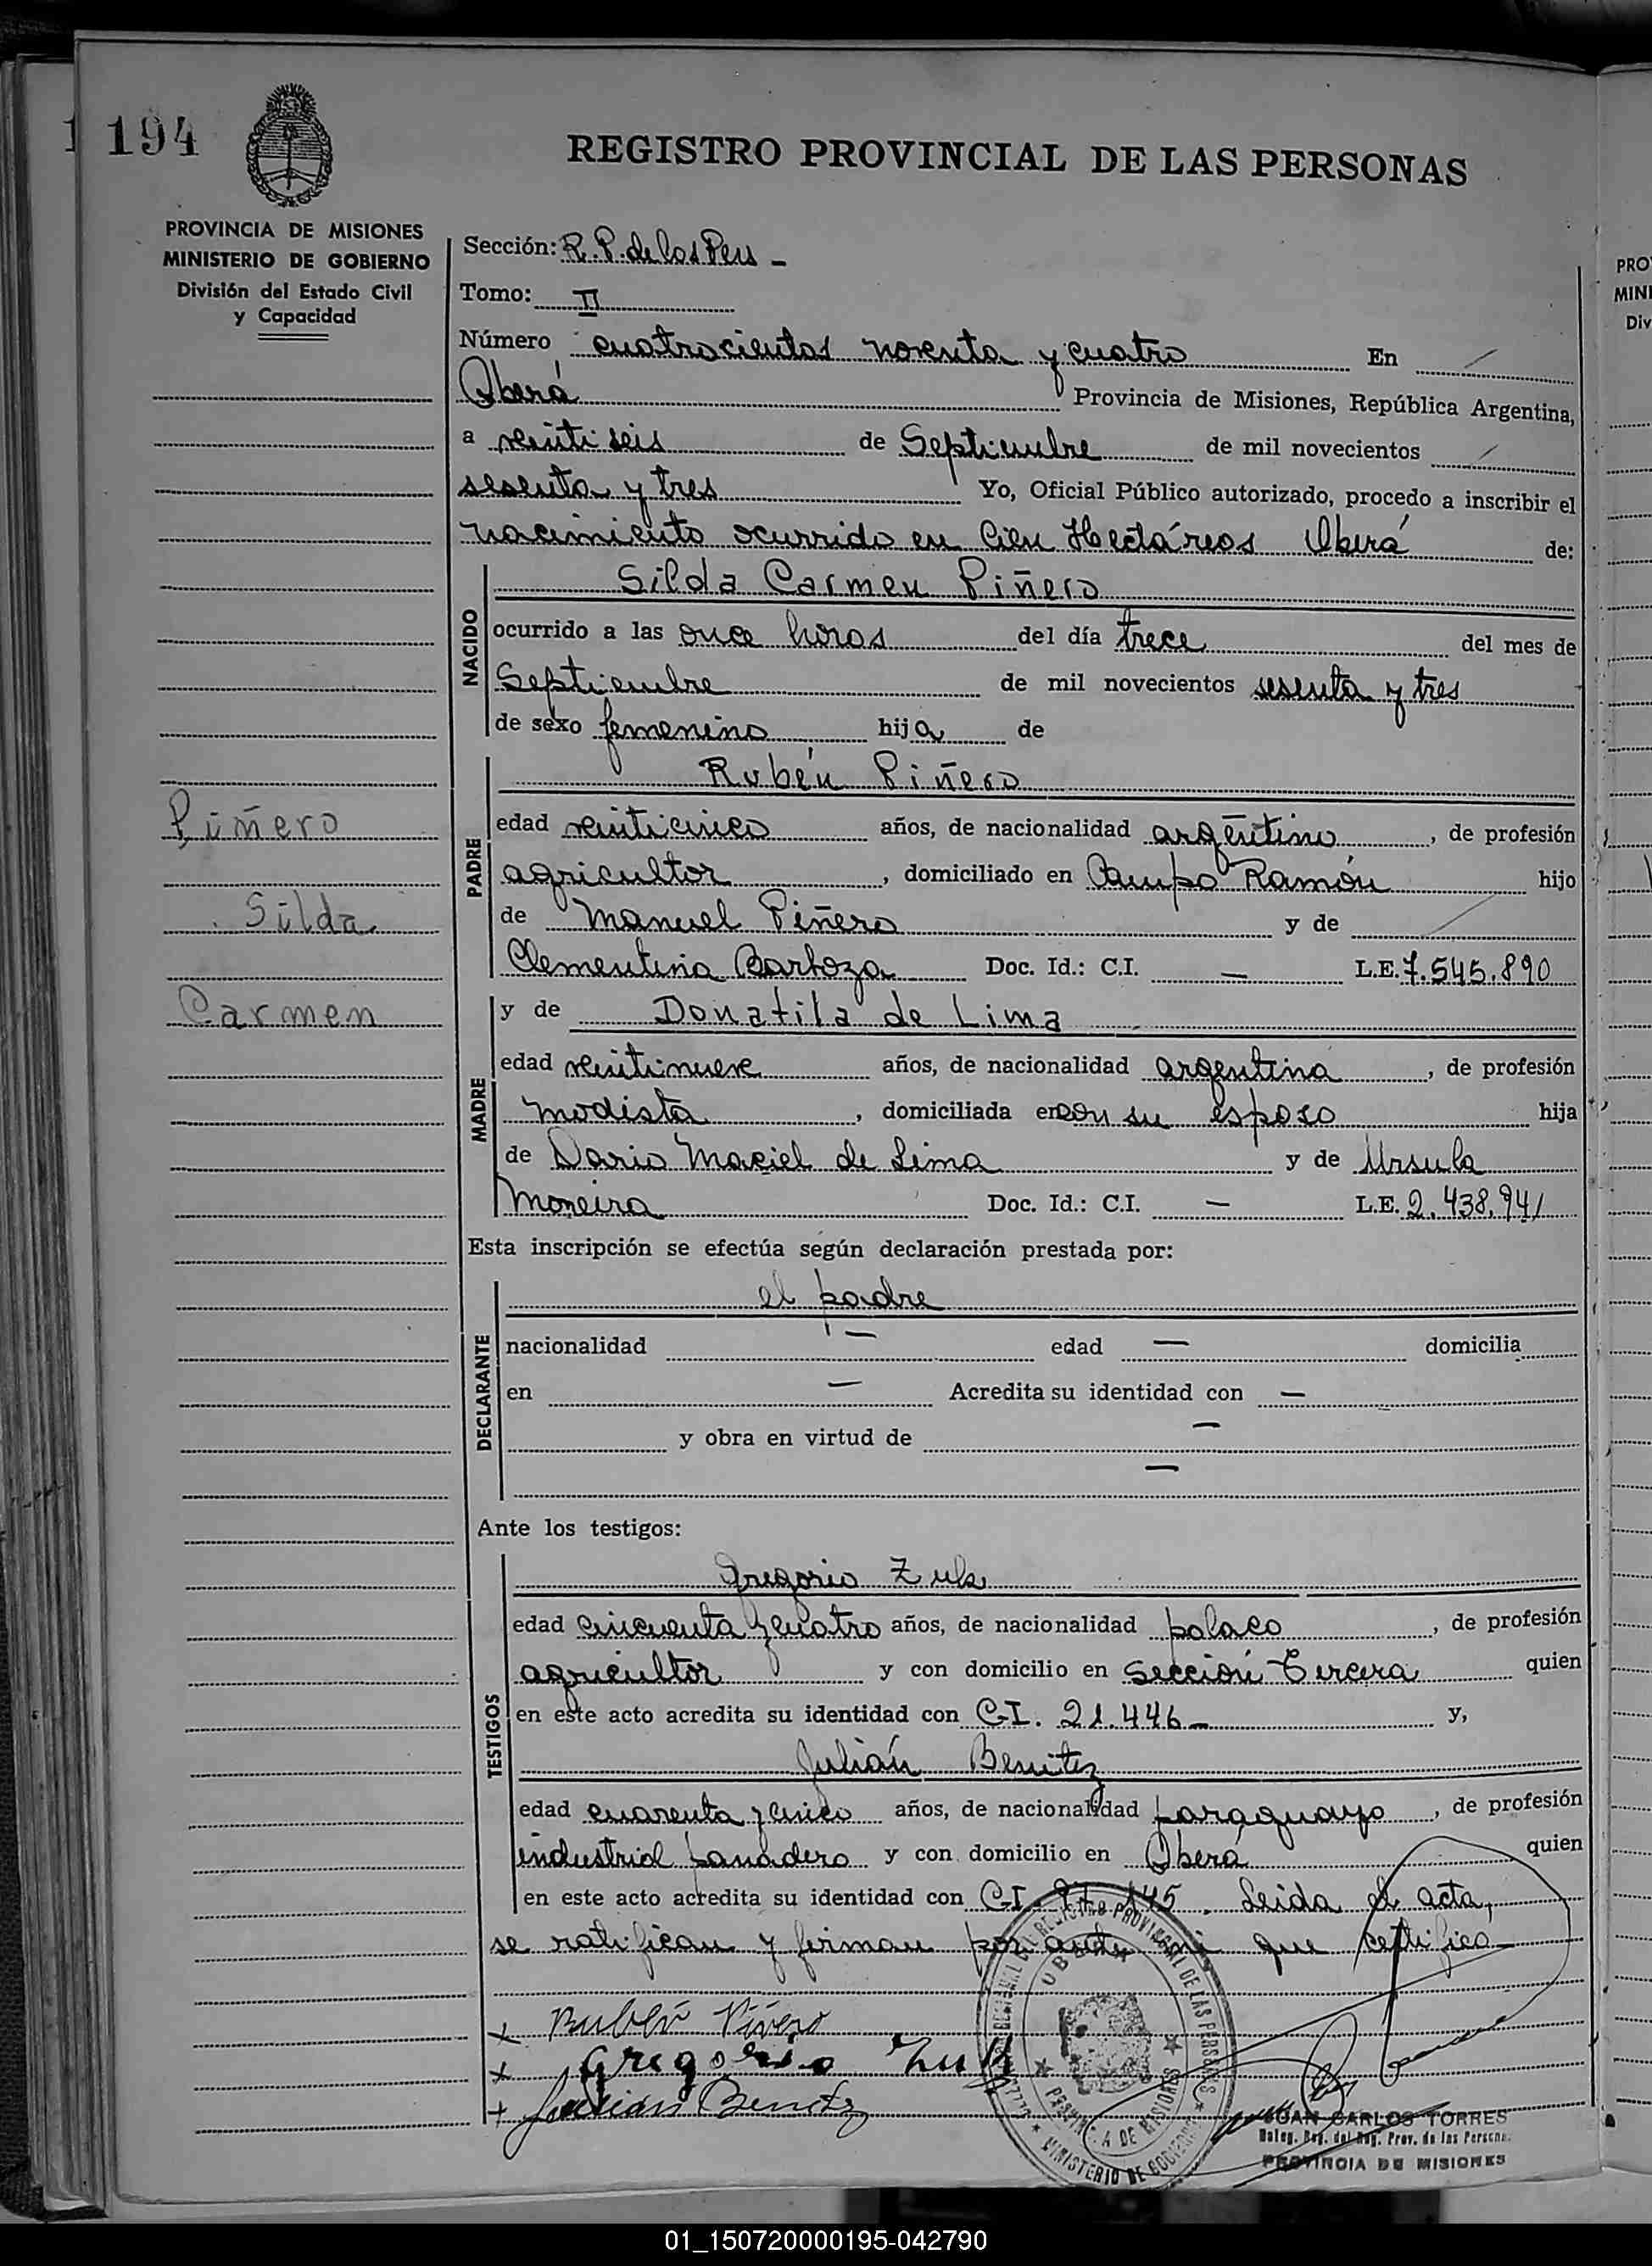 194
REGISTRO PROVINCIAL DE LAS PERSONAS
PROVINCIA DE MISIONES
MINISTERIO DE GOBIERNO
División del Estado Civil
y Capacidad
Sección: R. P. de las Pers -
Tomo: II
Número cuatrocientos noventa y cuatro En
Oberá Provincia de Misiones, República Argentina,
a veinti seis de Septiembre de mil novecientos
sesenta y tres Yo, Oficial Público autorizado, procedo a inscribir el
nacimiento ocurrido en Cien Hectáreas Oberá de:
NACIDO
Silda Carmen Piñero
ocurrido a las once horas del día trece del mes de
Septiembre de mil novecientos sesenta y tres
de sexo femenino hija de
PADRE
Rubén Piñero
edad veinticinco años, de nacionalidad argentino, de profesión
agricultor, domiciliado en Campo Ramón hijo
de Manuel Piñero y de
Clementina Barboza Doc. Id.: C.I. — L.E. 7.545.890
Piñero
Silda
Carmen
MADRE
y de Donatila de Lima
edad veintinueve años, de nacionalidad argentina, de profesión
modista, domiciliada en con su esposo hija
de Dario Maciel de Lima y de Ursula
Moreira Doc. Id.: C.I. — L.E. 2.438.941
Esta inscripción se efectúa según declaración prestada por:
DECLARANTE
el padre
nacionalidad — edad — domicilia
en — Acredita su identidad con —
y obra en virtud de —
—
Ante los testigos:
TESTIGOS
Gregorio Zuk
edad cincuenta y cuatro años, de nacionalidad polaco, de profesión
agricultor y con domicilio en Sección Tercera quien
en este acto acredita su identidad con C.I. 21.446- y,
Julián Benitez
edad cuarenta y cinco años, de nacionalidad paraguayo, de profesión
industrial panadero y con domicilio en Oberá quien
en este acto acredita su identidad con C.I. 145. Leida el acta,
se ratifican y firman por ante mi que certifico
+ Rubén Piñero
+ Gregorio Zuk
+ Julian Benitez
JUAN CARLOS TORRES
Deleg. Reg. del Reg. Prov. de las Persona.
PROVINCIA DE MISIONES
MINISTERIO DE GOBIERNO
PROVINCIA DE MISIONES
PRO
MINI
Div
01_150720000195-042790